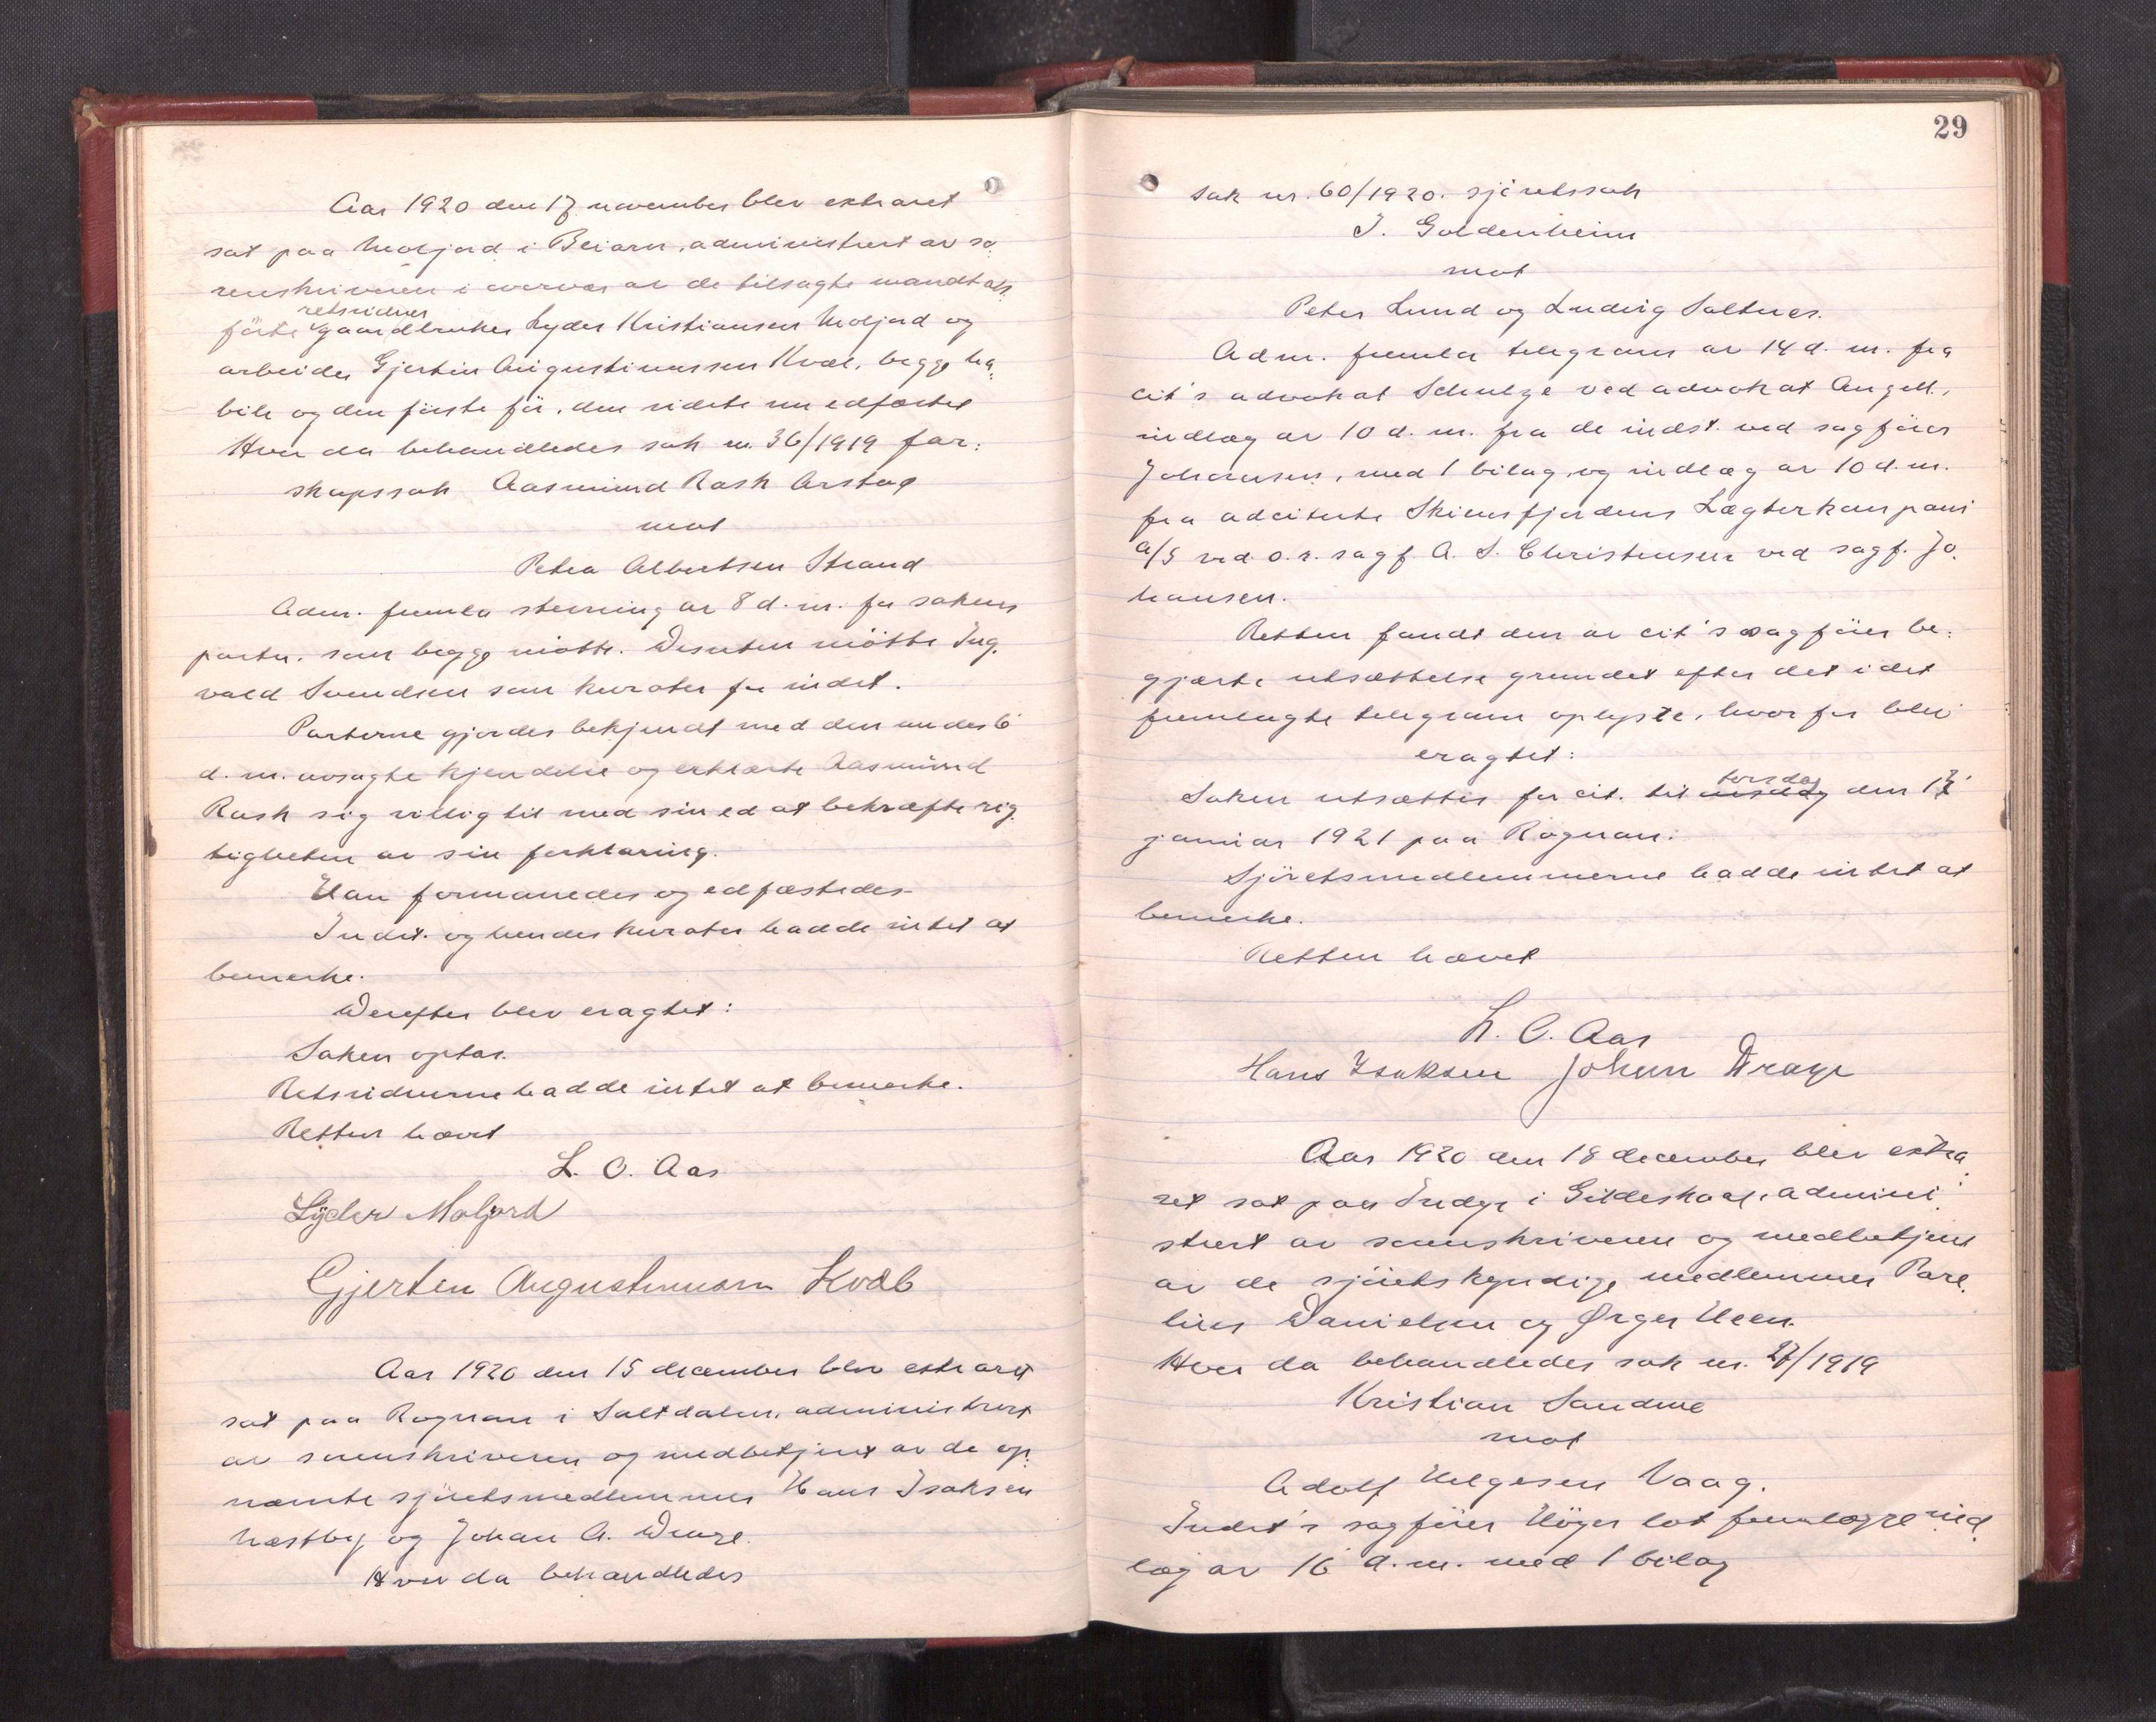 Aar 1920 den 17 november blev extraret
sat paa Moljord i Beiarn, administrert av so¸
renskriveren i overvær av de tilsagte mandtals
retsvidner
førte gaardbruker Lyder Kristiansen Moljord og
arbeider Gjertin Augustinussen Kvæl, begge ha¸
bile og den første før, den sidste nu edfæstet
Hvor da behandledes sak nr. 36/1919 far:
skapssak Aasmund Rask Arstad
mot
Petra Albertsen Strand
Adm. fremla stevning av 8 d. m. for sakens
parter, som begge møtte. Desuten møtte Ing.
vald Svendsen som kurator for indst.
Parterne gjordes bekjendt med den under 6
d. m. avsagte kjendelse og erklærte Aasmund
Rask sig villig til med sin ed at bekræfte rig.
tigheten av sin forklaring.
Han formanedes og edfæstedes
Indst. og hendes kurator hadde intet at
bemerke.
Derefter blev eragtet:
Saken optas.
Retsvidnerne hadde intet at bemerke.
Retten hævet
L. O. Aas
Lyder Moljord
Gjerten Augustinusen Kvæl
Aar 1920 den 15 december blev extraret
sat paa Rognan i Saltdalen, administrert
av sorenskriveren og medbetjent av de op¸
nævnte sjøretsmedlemmer Hans Isaksen
Næstby og Johan A. Drage.
Hvor da behandledes
29
Sak nr. 60/1920. sjøretssak
I. Goldenheim
mot
Peter Lund og Ludvig Saltnes.
Adm. fremla telegram av 14 d. m. fra
cit's advokat Schulze ved advokat Angell,
indlæg av 10 d. m. fra de indst. ved sagfører
Johansen, med 1 bilag, og indlæg av 10 d. m.
fra adciterte Skiensfjordens Lægterkompani
A/S ved o.r. sagf. A. S. Christensen ved sagf. Jo.
hansen.
Retten fandt den av cit's sagfører be:
gjærte utsættelse grundet efter det i det
fremlagte telegram oplyste, hvorfor blev
eragtet:
torsdag
Saken utsættes for cit. til den 13
januar 1921 paa Rognan.
Sjøretsmedlemmerne hadde intet at
bemerke.
Retten hævet
L. O. Aas
Hans Isaksen Johan Drage
Aar 1920 den 18 december blev extra¸
ret sat paa Indyr i Gildeskaal, admini¸
strert av sorenskriveren og medbetjent
av de sjøretskyndige medlemmer Pare¸
lius Danielsen og Ørger Ueen.
Hvor da behandledes sak nr. 27/1919
Kristian Sandme
mot
Adolf Helgesen Vaag.
Indst's sagfører Høyer lot fremlægge ind¸
læg av 16 d. m. med 1 bilag